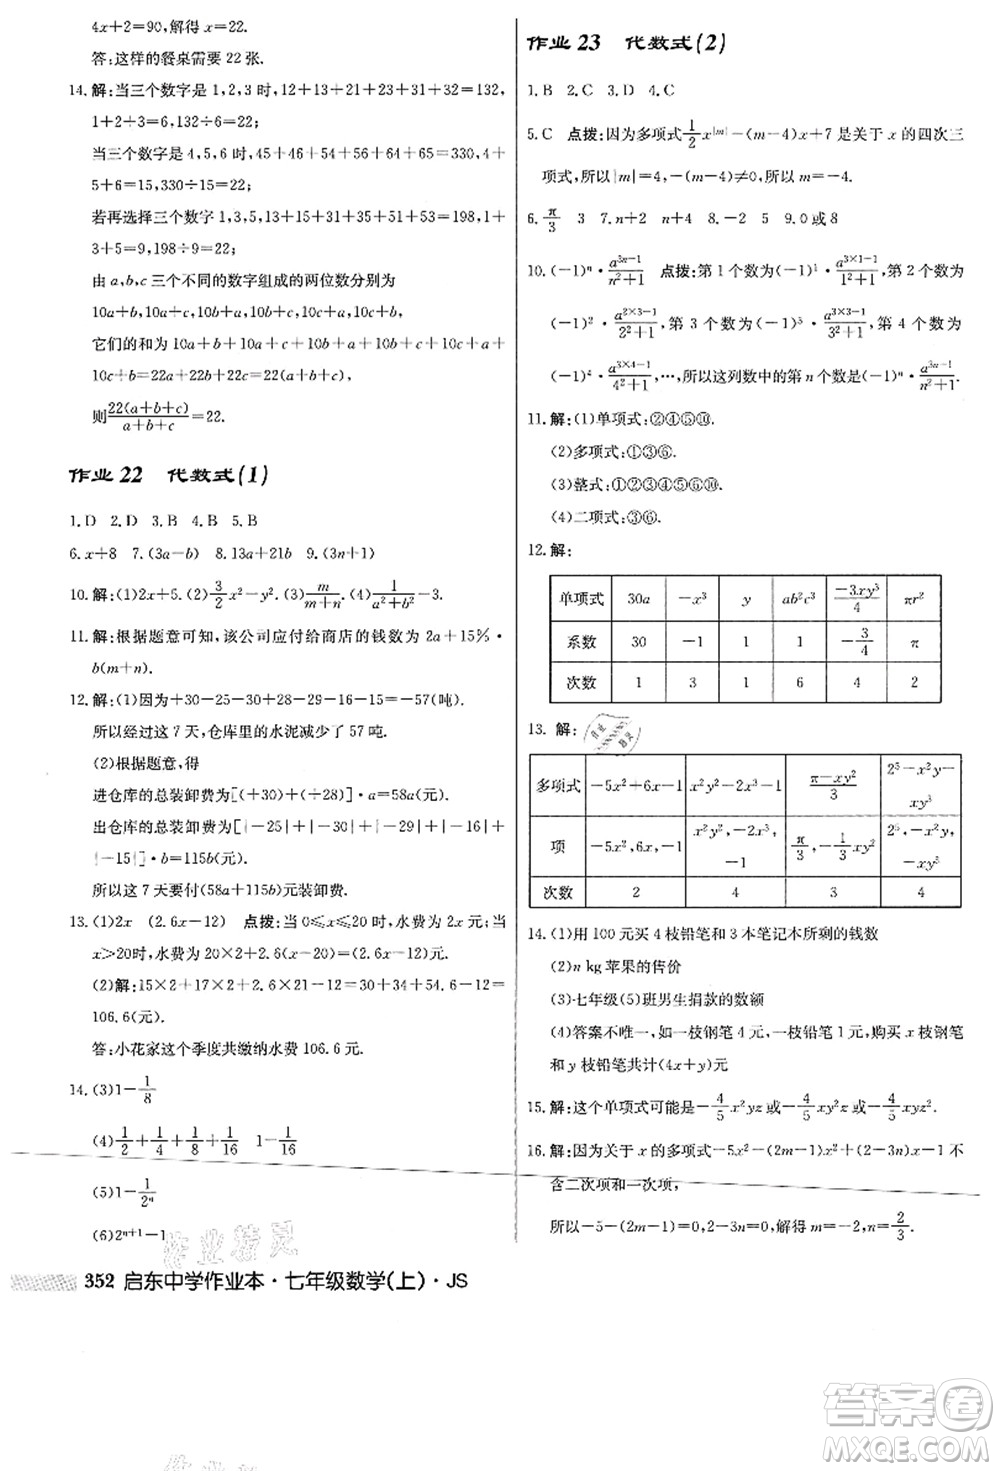 4x+2=90,解得 x=22.
答:这样的餐桌需要 22 张.
14.解:当三个数字是 1,2,3 时,12+13+21+23+31+32=132,
1+2+3=6,132÷6=22;
当三个数字是 4,5,6 时,45+46+54+56+64+65=330,4+
5+6=15,330÷15=22;
若再选择三个数字 1,3,5,13+15+31+35+51+53=198,1+
3+5=9,198÷9=22;
由 a,b,c 三个不同的数字组成的两位数分别为
10a+b,10a+c,10b+a,10b+c,10c+a,10c+b,
它们的和为 10a+b+10a+c+10b+a+10b+c+10c+a+
10c+b=22a+22b+22c=22(a+b+c),
则22(a+b+c)/a+b+c=22.
作业 22 代数式(1)
1.D 2.D 3.B 4.B 5.B
6.x÷8 7.(3a-b) 8.13a+21b 9.(3n+1)
10.解:(1)2x+5.(2)3/2x²-y².(3)m/m+n.(4)1/a²+b²-3.
11.解:根据题意可知,该公司应付给商店的钱数为 2a+15%·
b(m+n).
12.解:(1)因为+30-25-30+28-29+16-15=-57(吨)
所以经过这 7 天,仓库里的水泥减少了 57 吨.
(2)根据题意,得
进仓库的总装卸费为[(+30)+(+28)]·a=58a(元),
出仓库的总装卸费为[|-25|+|-30|+|-29|+|-16|+
|-15|]·b=115b(元),
所以这 7 天要付(58a+115b)元装卸费.
13.(1)2x (2.6x-12) 点拨:当 0≤x≤20 时,水费为 2x 元;当
x>20 时,水费为 20×2+2.6(x-20)=(2.6x-12)元.
(2)解:15×2+20×2+2.6×(21-20)=30+34+42.6=
106.6(元).
答:小花家这个季度共缴纳水费 106.6 元.
14.(3)1-1/8
(4)1/2+1/4+1/8+1/16 1-1/16
(5)1-1/2ⁿ
(6)2ⁿ⁺¹-1
352 启东中学作业本·七年级数学(上)·JS
作业 23 代数式(2)
1.B 2.C 3.D 4.C
5.C 点拨:因为多项式1/2x^|m|-(m-4)x+7 是关于 x 的四次三
项式,所以|m|=4,-(m-4)≠0,所以 m=-4.
6.π/3 3 7.n+2 n+4 8.-2 5 9.0或8
10.(-1)ⁿ·a³ⁿ⁻¹/n²+1 点拨:第 1 个数为(-1)¹·a^(3×1-1)/1²+1,第 2 个数为
(-1)²·a^(2×3-1)/2²+1,第 3 个数为(-1)³·a^(3×3-1)/3²+1,第 4 个数为
(-1)⁴·a^(3×4-1)/4²+1,…,所以这列数中的第 n 个数是(-1)ⁿ·a³ⁿ⁻¹/n²+1.
11.解:(1)单项式:②④⑤⑩.
(2)多项式:①③⑥.
(3)整式:①②③④⑤⑥⑩.
(4)二项式:③⑥.
12.解:
单项式 30a -x³ y ab²c³ -3xy³/4 πr²
系数 30 -1 1 1 -3/4 π
次数 1 3 1 6 4 2
13.解:
多项式 -5x²+6x-1 x²y²-2x³-1 π-xy²/3 2⁵-x²y-xy³
项 -5x²,6x,-1 x²y²,-2x³,-1 π/3,-1/3xy² 2⁵,-x²y,-xy³
次数 2 4 3 4
14.(1)用 100 元买 4 枝铅笔和 3 本笔记本所剩的钱数
(2)n kg 苹果的售价
(3)七年级(5)班男生捐款的数额
(4)答案不唯一,如一枝钢笔 4 元,一枝铅笔 1 元,购买 x 枝钢笔
和 y 枝铅笔共计(4x+y)元
15.解:这个单项式可能是-4/5x²yz 或-4/5xy²z 或-4/5xyz².
16.解:因为关于 x 的多项式-5x²-(2m-1)x²+(2-3n)x-1 不
含二次项和一次项,
所以-5-(2m-1)=0,2-3n=0,解得 m=-2,n=2/3.
作业精灵
答案圈
MXQE.COM